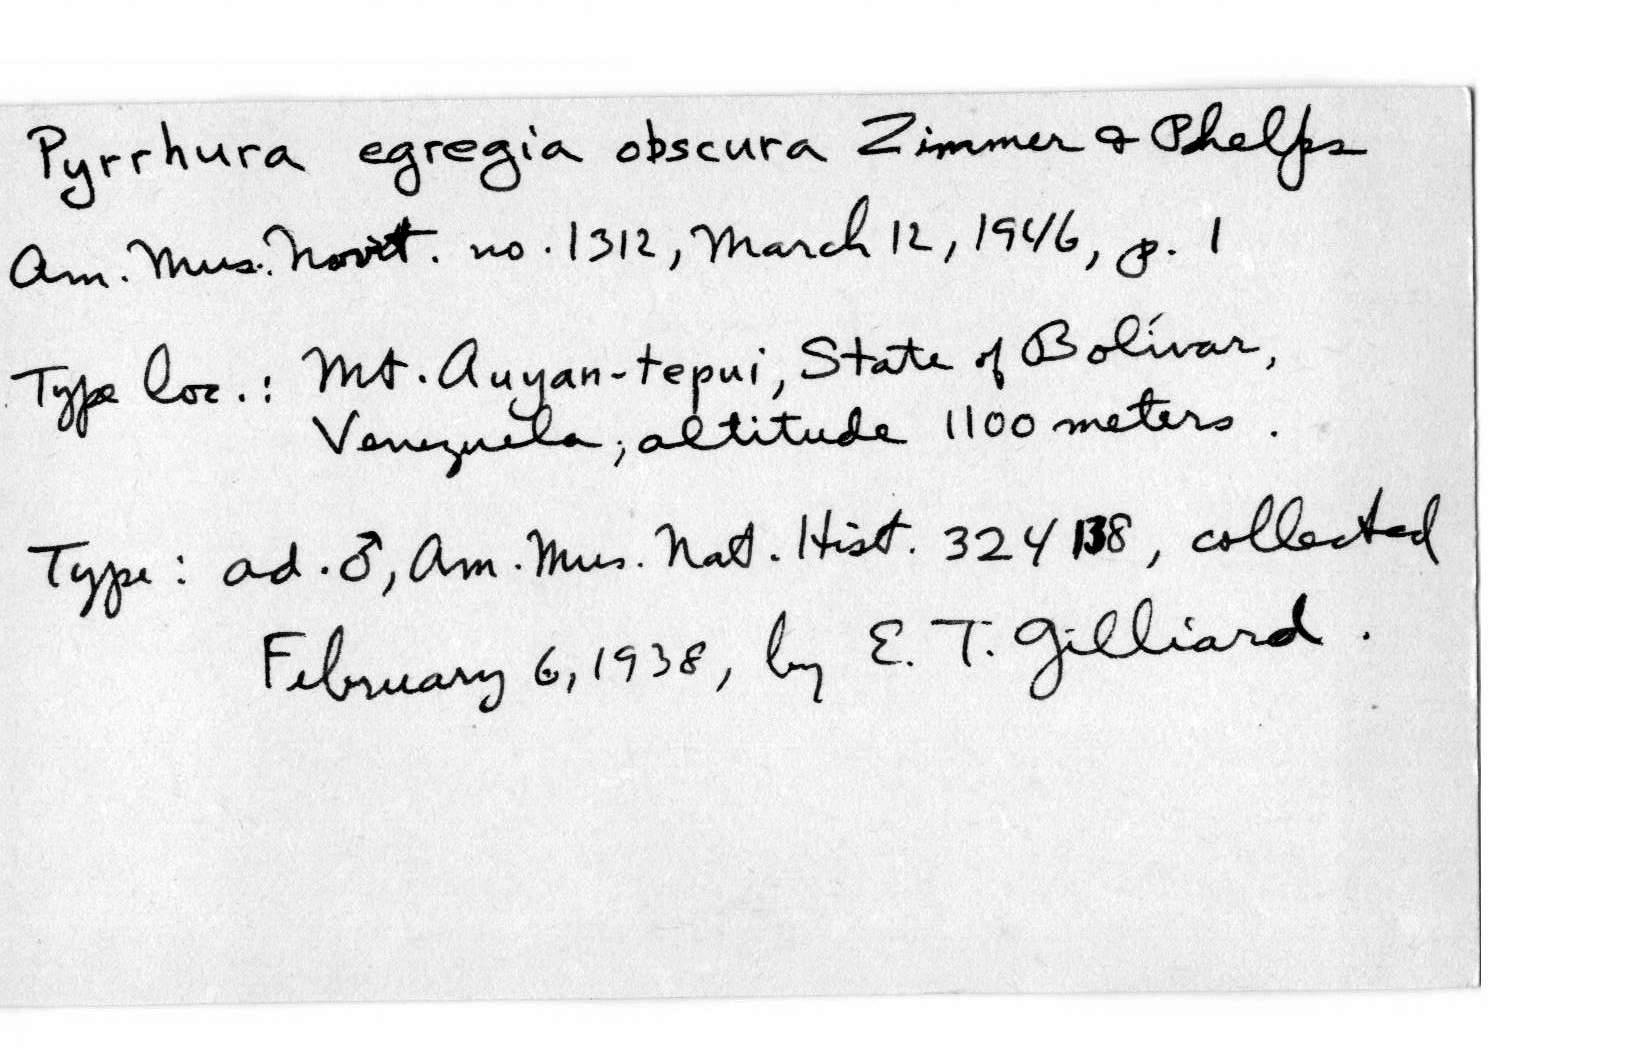 Pyrrhura egregia obscura Zimmer & Phelps
Am. Mus. Novit. no. 1312, March 12, 1946, p. 1
Type loc.: Mt. Auyan-tepui, State of Bolívar,
Venezuela; altitude 1100 meters.
Type: ad. ♂, Am. Mus. Nat. Hist. 324138, collected
February 6, 1938, by E. T. Gilliard.